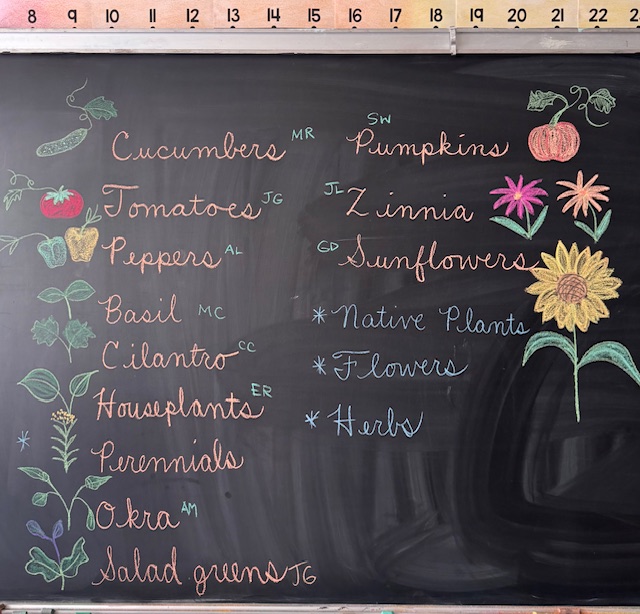 8 9 10 11 12 13 14 15 16 17 18 19 20 21 22
Cucumbers MR
Tomatoes JG
Peppers AL
Basil MC
Cilantro CC
Houseplants ER
* Perennials
Okra AM
Salad greens JG
SW
Pumpkins
JL Zinnia
GD Sunflowers
* Native Plants
* Flowers
* Herbs